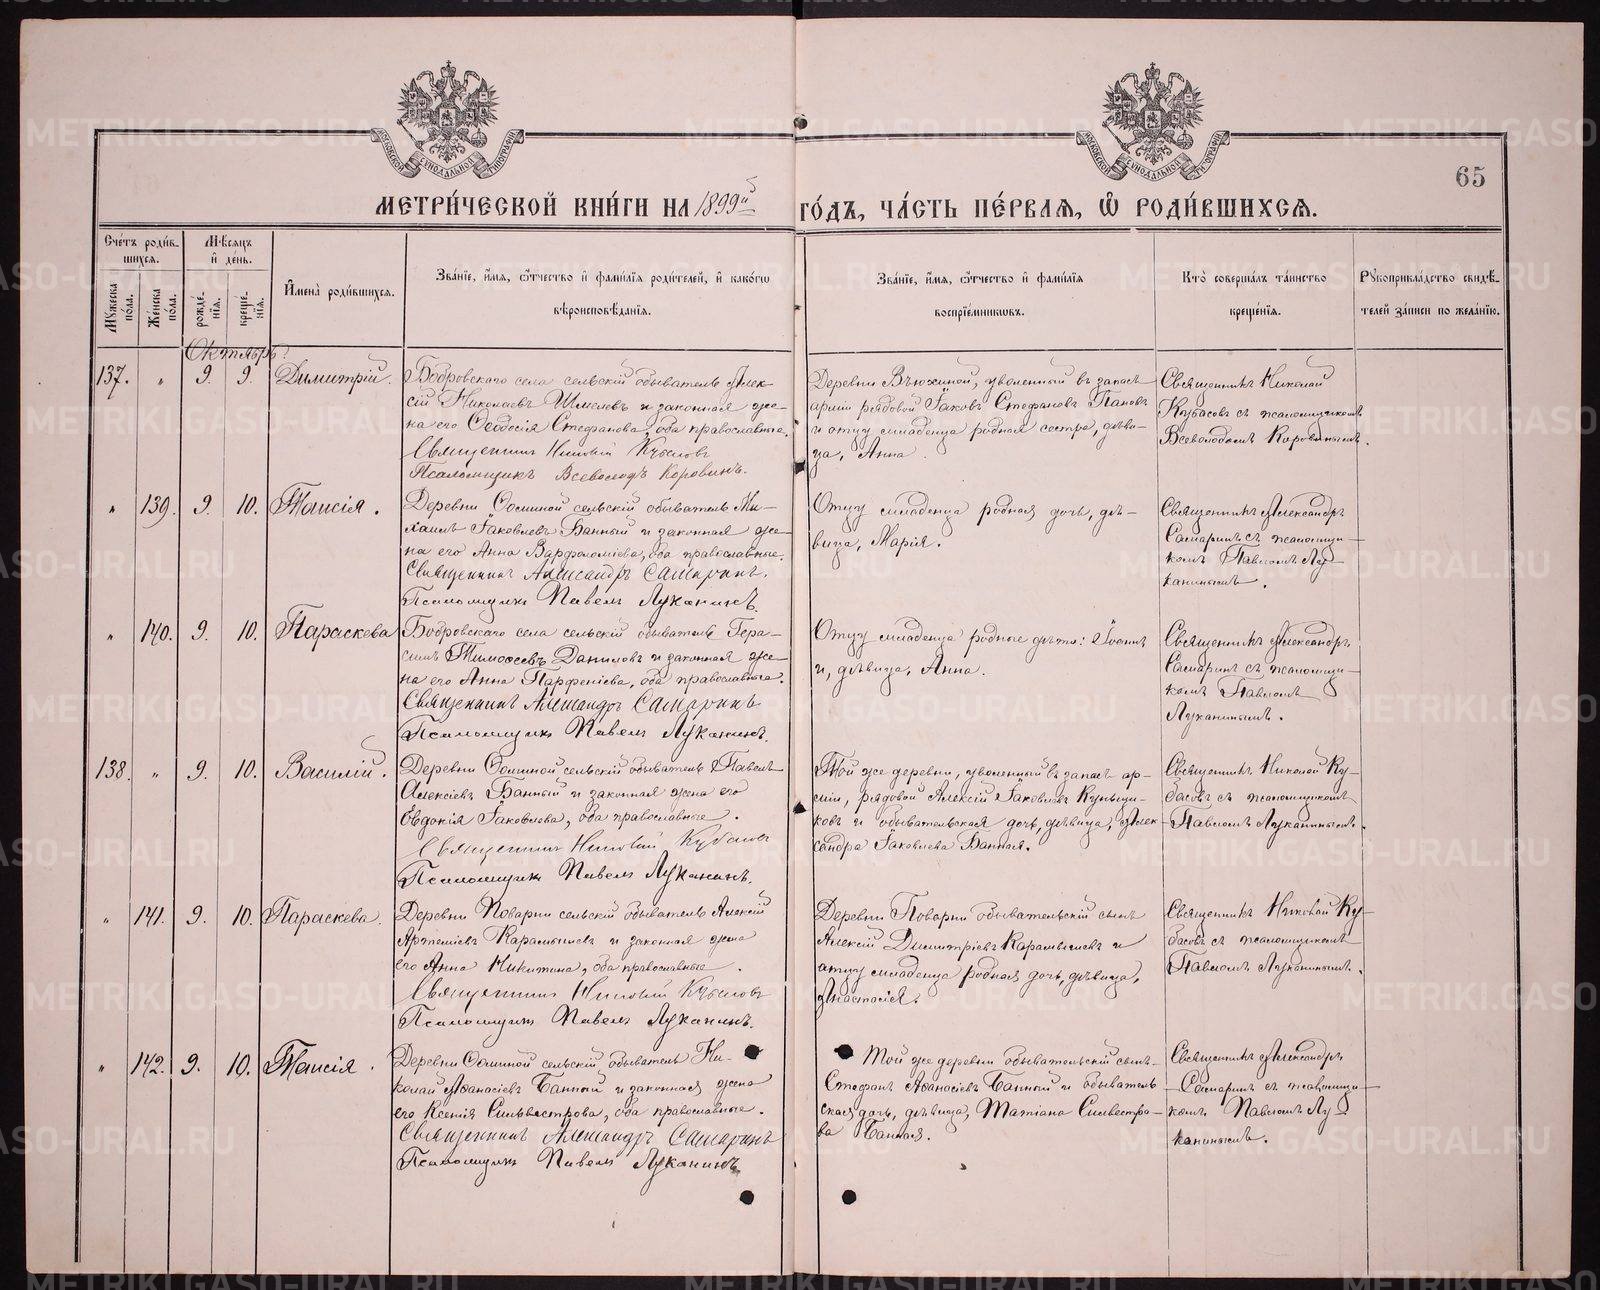 65
МЕТРИ́ЧЕСКОЙ КНИ́ГИ НА 1899й ГО́ДЪ, ЧА́СТЬ ПЕ́РВАѦ, Ѡ҆ РОДИ́ВШИХСѦ.
Сче́тъ роди́в-
шихсѧ.
Мѣ́сѧцъ
и҆ де́нь.
Мꙋ́жеска
по́ла.
Же́нска
по́ла.
рожде́-
нїѧ.
креще́-
нїѧ.
И҆мена̀ роди́вшихсѧ.
Зва́нїе, и҆́мѧ, ѻ҆́тчество и҆ фами́лїѧ роди́телей, и҆ како́гѡ
вѣроисповѣ́данїѧ.
Зва́нїе, и҆́мѧ, ѻ҆́тчество и҆ фами́лїѧ
воспрїе́мникѡвъ.
Кто̀ соверша́лъ та́инство
креще́нїѧ.
Рꙋкоприкла́дство свидѣ́-
телей за́писи по жела́нїю.
Октябрь
137. " 9. 9. Димитрій.
Бобровскаго села сельскій обыватель Алек-
сій Николаевъ Шмелевъ и законная же-
на его Ѳеодосія Стефанова, оба православные.
Священникъ Николай Кубасовъ
Псаломщикъ Всеволодъ Коровинъ.
Деревни Вьюхиной, уволенный въ запасъ
арміи рядовой Іаковъ Стефановъ Пановъ
и отцу младенца родная сестра, дѣви-
ца, Анна.
Священникъ Николай
Кубасовъ съ псаломщикомъ
Всеволодомъ Коровинымъ.
" 139. 9. 10. Таисія.
Деревни сельскій обыватель Ми-
хаилъ Іаковлевъ Банный и законная же-
на его Анна Варфоломіева, оба православные.
Священникъ Александръ Самаринъ.
Псаломщикъ Павелъ Луканинъ.
Отцу младенца родная дочь, дѣ-
вица, Марія.
Священникъ Александръ
Самаринъ съ псаломщи-
комъ Павломъ Лу-
канинымъ.
" 140. 9. 10. Параскева
Бобровскаго села сельскій обыватель Гера-
симъ Тимоѳеевъ Даниловъ и законная же-
на его Анна Парфеніева, оба православные.
Священникъ Александръ Самаринъ
Псаломщикъ Павелъ Луканинъ.
Отцу младенца родные дѣти: Іоаннъ
и, дѣвица, Анна.
Священникъ Александръ
Самаринъ съ псаломщи-
комъ Павломъ
Луканинымъ.
138. " 9. 10. Василій.
Деревни сельскій обыватель Павелъ
Алексіевъ Банный и законная жена его
Евдокія Іаковлева, оба православные.
Священникъ Николай Кубасовъ
Псаломщикъ Павелъ Луканинъ.
Той же деревни, уволенный въ запасъ ар-
міи, рядовой Алексій Іаковлевъ Купщи-
ковъ и обывательская дочь, дѣвица, Алек-
сандра Іаковлева Банная.
Священникъ Николай Ку-
басовъ съ псаломщикомъ
Павломъ Луканинымъ.
" 141. 9. 10. Параскева.
Деревни Поварни сельскій обыватель Алексій
Артеміевъ Карамышевъ и законная жена
его Анна Никитина, оба православные.
Священникъ Николай Кубасовъ
Псаломщикъ Павелъ Луканинъ.
Деревни Поварни обывательскій сынъ
Алексій Димитріевъ Карамышевъ и
отцу младенца родная дочь, дѣвица,
Анастасія.
Священникъ Николай Ку-
басовъ съ псаломщикомъ
Павломъ Луканинымъ.
" 142. 9. 10. Таисія.
Деревни сельскій обыватель Ни-
колай Аѳанасіевъ Банный и законная жена
его Ксенія Сильвестрова, оба православные.
Священникъ Александръ Самаринъ
Псаломщикъ Павелъ Луканинъ
Той же деревни обывательскій сынъ
Стефанъ Аѳанасіевъ Банный и обыватель
ская дочь, дѣвица, Татіана Сильвестро-
ва Банная.
Священникъ Александръ
Самаринъ съ псаломщи-
комъ Павломъ Лу-
канинымъ.